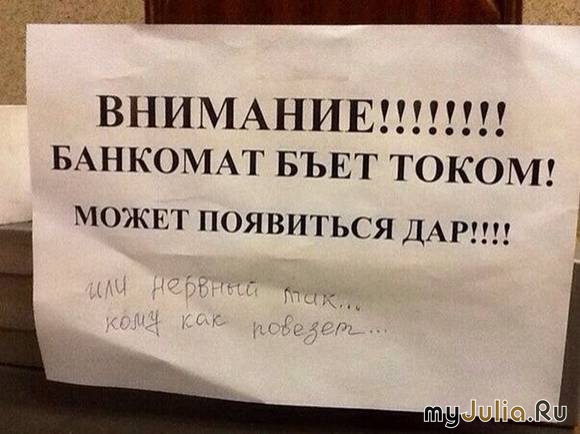 ВНИМАНИЕ!!!!!!!!
БАНКОМАТ БЪЕТ ТОКОМ!
МОЖЕТ ПОЯВИТЬСЯ ДАР!!!!
или нервный тик...
кому как повезет...
myJulia.Ru